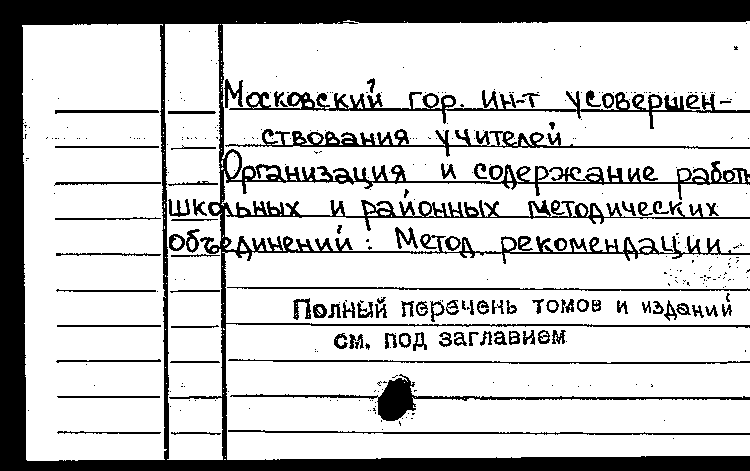 Московский гор. ин-т усовершен-
ствования учителей.
Организация и содержание работы
школьных и районных методических
объединений: Метод. рекомендации.-
Полный перечень томов и изданий
см. под заглавием